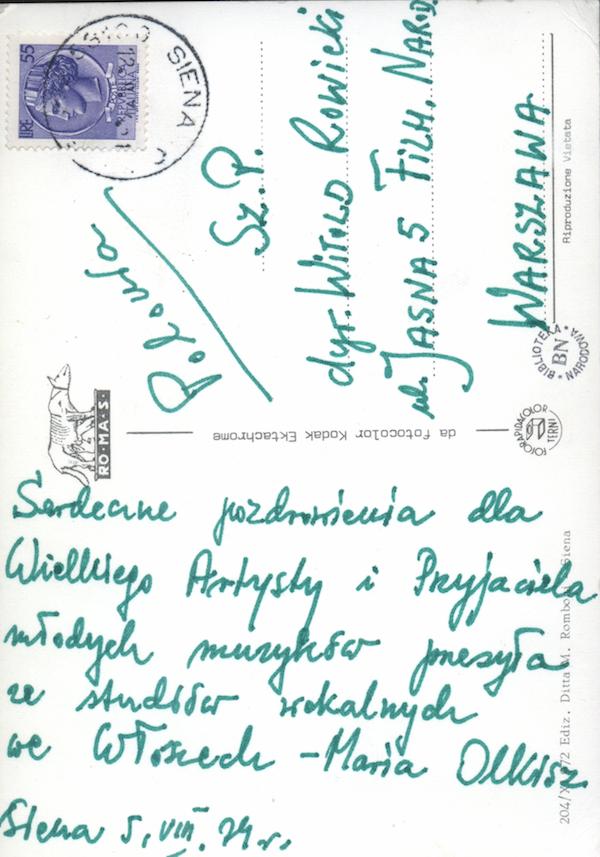 55
LIRE
REPUBBLICA
ITALIANA
SIENA
Polonia
Sz. P.
dyr. WITOLD ROWICKI
ul. JASNA 5 FILH. NAROD.
WARSZAWA
Riproduzione Vietata
BIBLIOTEKA NARODOWA
BN
FOTORAPIDACOLOR
TERNI
da fotocolor Kodak Ektachrome
RO·MA·S·
Serdeczne pozdrowienia dla
Wielkiego Artysty i Przyjaciela
młodych muzyków przesyła
ze studiów wokalnych
we Włoszech - Maria Olkisz
Siena 5. VIII. 74 r.
Ediz. Ditta M. Siena